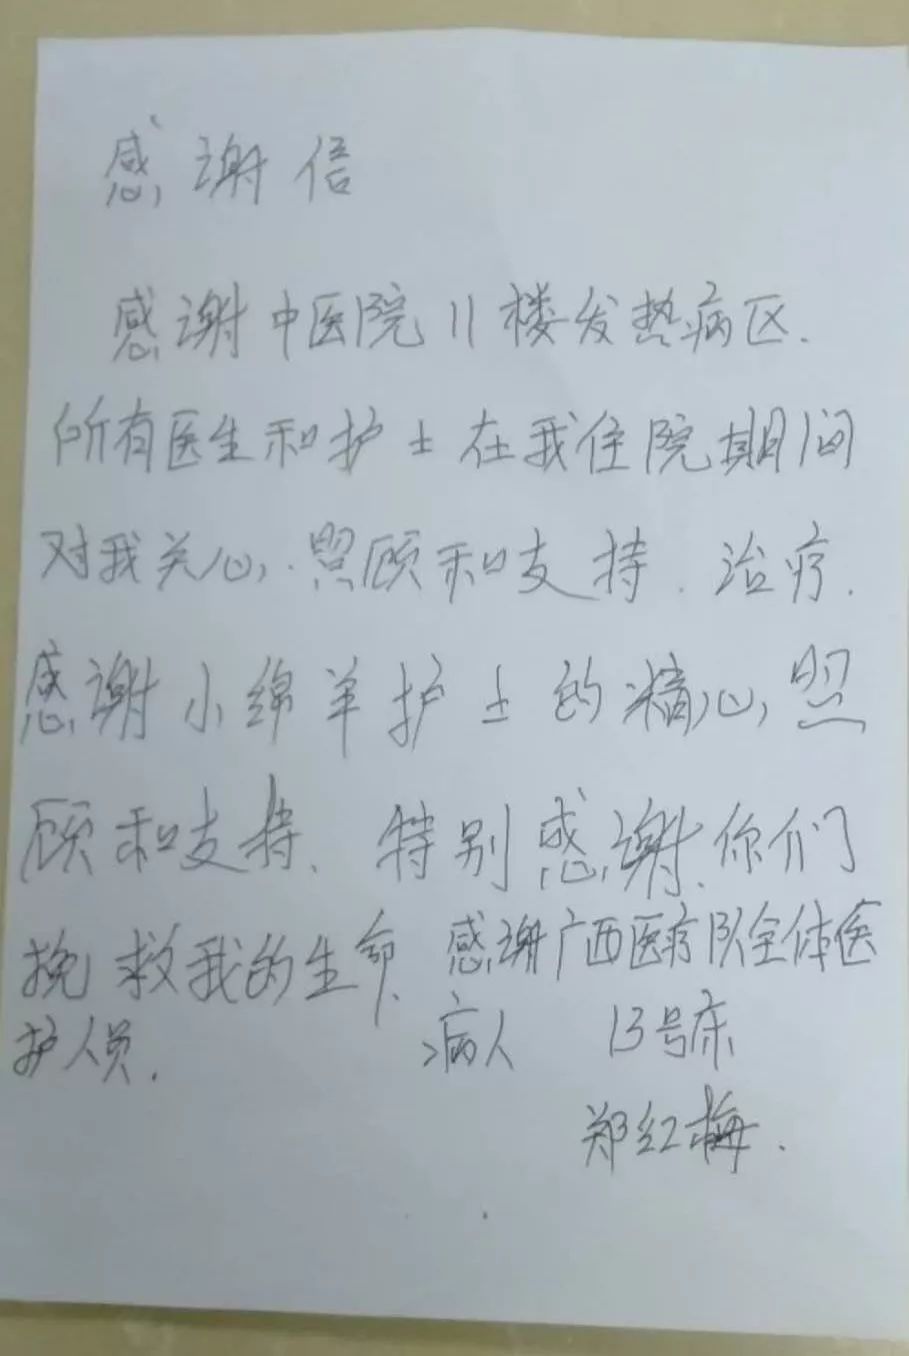 感谢信
感谢中医院11楼发热病区.
所有医生和护士在我住院期间
对我关心.照顾和支持.治疗.
感谢小绵羊护士的精心照
顾和支持、特别感谢.你们
挽救我的生命.感谢广西医疗队全体医
护人员. 病人 13号床
郑红梅.